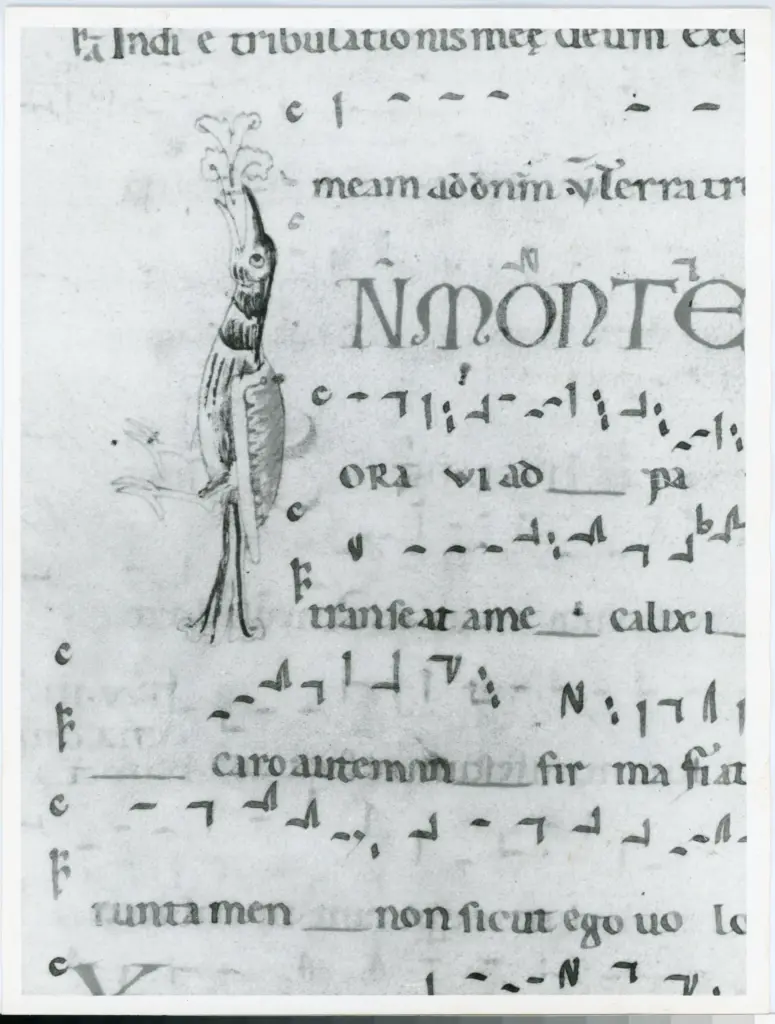 In die tribulationis meę deum exq
meam ad dnm v Terra tre
N MONTE
ORA VI AD pa
transeat a me calix i
caro autem in fir ma fiat
runtamen non sicut ego uo lo